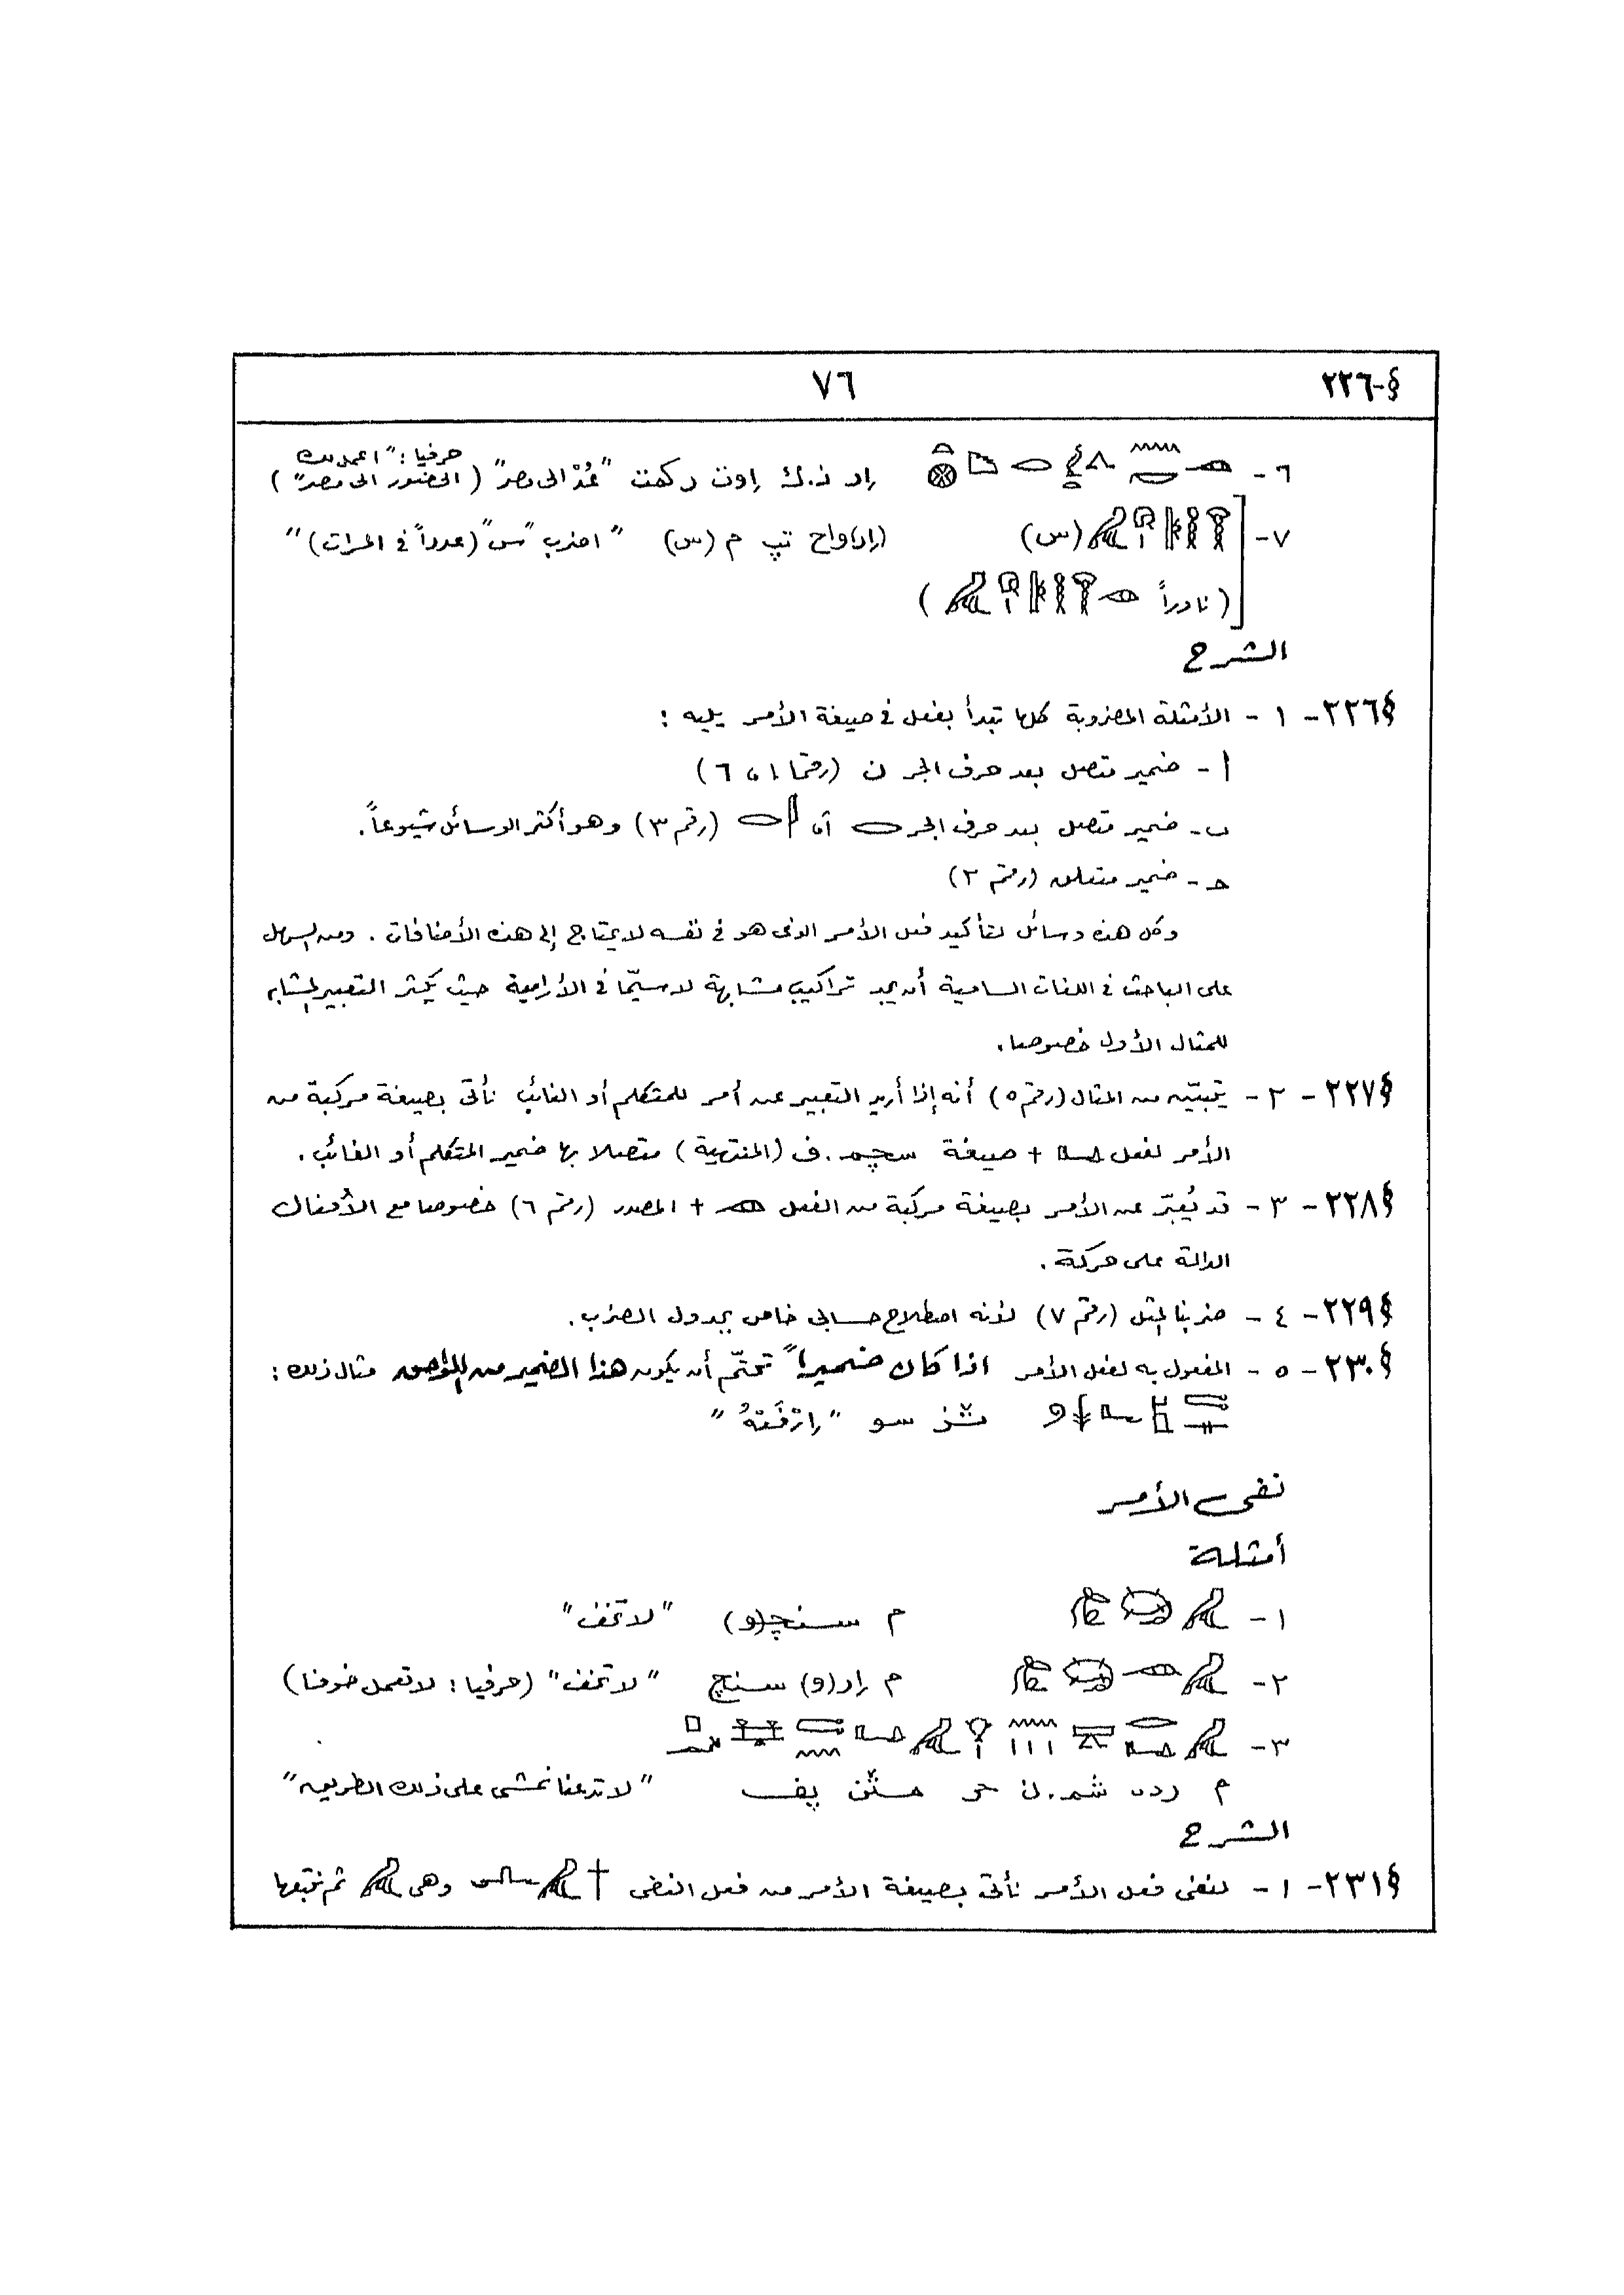 §-٢٢٦ ٧٦
٦- إر ن.ك إوت ر كمت "عُدْ الى مصر" (حرفيا: "اعمل لك الحضور الى مصر")
٧- (س) (إر) واح تپ م (س) "اضرب "س" (عدداً فى المرات)"
(نادراً )
الشرح
§٢٢٦- ١- الأمثلة المضروبة كلها تبدأ بفعل فى صيغة الأمر يليه :
أ- ضمير متصل بعد حرف الجر ن (رقما ١، ٦)
ب- ضمير متصل بعد حرف الجر (رقم ٣) وهو أكثر الوسائل شيوعاً.
حـ- ضمير متعلق (رقم ٢)
وكل هذه وسائل لتأكيد فعل الأمر الذى هو فى نفسه لا يحتاج إلى هذه الأضافات. ومن السهل
على الباحث فى اللغات السامية أن يجد تراكيب مشابهة لا سيّما فى الأرامية حيث يكثر التعبير المشابه
للمثال الأول خصوصا.
§٢٢٧- ٢- يتبيّن من المثال (رقم ٥) أنه إذا أريد التعبير عن أمر للمتكلم أو الغائب نأتى بصيغة مركبة من
الأمر لفعل + صيغة سچم.ف (المنتهية) متصلا بها ضمير المتكلم أو الغائب.
§٢٢٨- ٣- قد يُعبّر عن الأمر بصيغة مركبة من الفعل + المصدر (رقم ٦) خصوصا مع الأفعال
الدالة على حركة.
§٢٢٩- ٤- ضربنا المثل (رقم ٧) لأنه اصطلاح حسابى خاص بجدول الضرب.
§٢٣٠- ٥- المفعول به لفعل الأمر اذا كان ضميراً تحتّم أن يكون هذا الضمير من اللواحق مثال ذلك :
سو "إرْفَعْهُ"
نفى الأمر
أمثلة
١- م سنچ(و) "لا تخف"
٢- م إر(و) سنچ "لا تخف" (حرفيا : لا تعمل خوفا)
٣-
م شم.ن حر پف "لا تدعنا نمشى على ذلك الطريق"
الشرح
§٢٣١- ١- لنفى فعل الأمر نأتى بصيغة الأمر من فعل النفى وهى ثم نتبعها